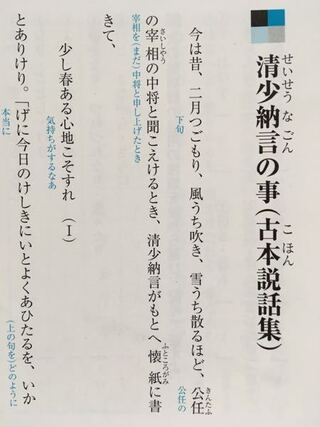 清少納言の事(古本説話集)
せいせう な ごん
こ ほん
今は昔、二月つごもり、風うち吹き、雪うち散るほど、公任
きんたふ
下旬
公任の
の宰相の中将と聞こえけるとき、清少納言がもとへ懐紙に書
さいしやう
ふところがみ
宰相を(まだ)中将と申し上げたとき
きて、
少し春ある心地こそすれ (Ⅰ)
気持ちがするなあ
とありけり。「げに今日のけしきにいとよくあひたるを、いか
本当に
(上の句を)どのように